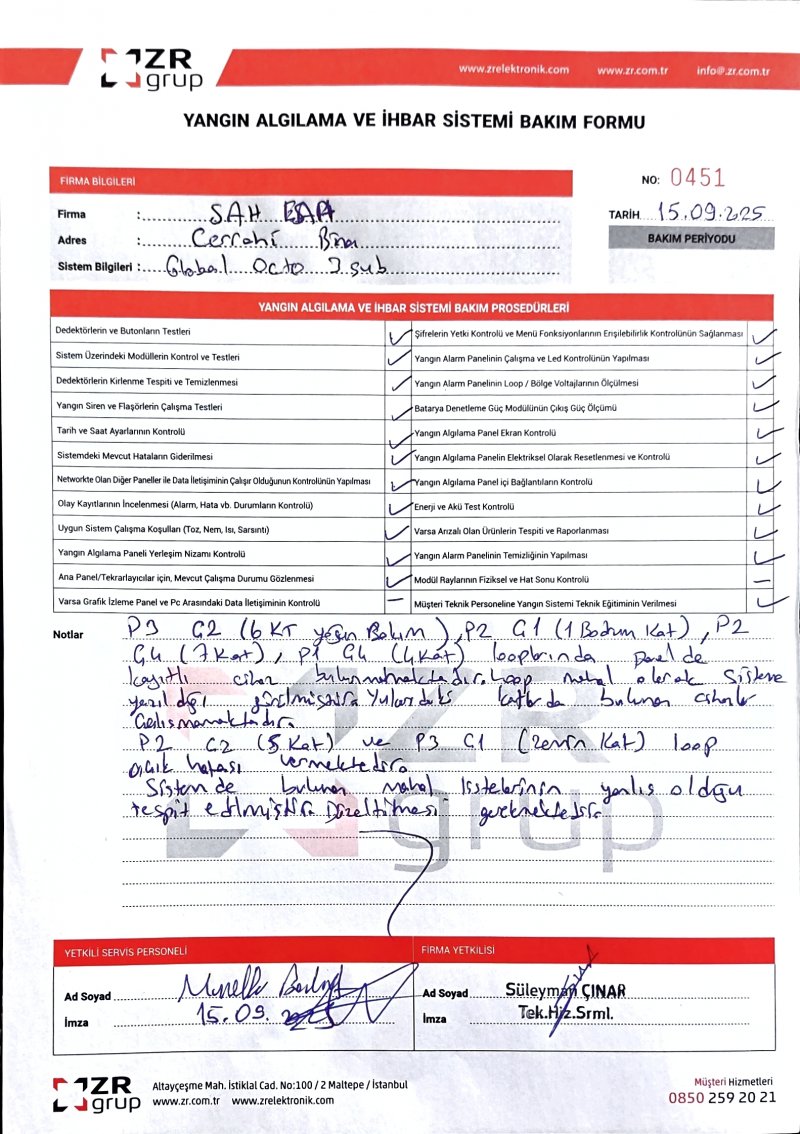 ZR grup
www.zrelektronik.com www.zr.com.tr info@.zr.com.tr
YANGIN ALGILAMA VE İHBAR SİSTEMİ BAKIM FORMU
FİRMA BİLGİLERİ
NO: 0451
Firma : SAH EAH
TARİH 15.09.2025
Adres : Cerrahi Bina
BAKIM PERİYODU
Sistem Bilgileri : Global Octo
YANGIN ALGILAMA VE İHBAR SİSTEMİ BAKIM PROSEDÜRLERİ
Dedektörlerin ve Butonların Testleri ✓ Şifrelerin Yetki Kontrolü ve Menü Fonksiyonlarının Erişilebilirlik Kontrolünün Sağlanması ✓
Sistem Üzerindeki Modüllerin Kontrol ve Testleri ✓ Yangın Alarm Panelinin Çalışma ve Led Kontrolünün Yapılması ✓
Dedektörlerin Kirlenme Tespiti ve Temizlenmesi ✓ Yangın Alarm Panelinin Loop / Bölge Voltajlarının Ölçülmesi ✓
Yangın Siren ve Flaşörlerin Çalışma Testleri ✓ Batarya Denetleme Güç Modülünün Çıkış Güç Ölçümü ✓
Tarih ve Saat Ayarlarının Kontrolü ✓ Yangın Algılama Panel Ekran Kontrolü ✓
Sistemdeki Mevcut Hataların Giderilmesi ✓ Yangın Algılama Panelin Elektriksel Olarak Resetlenmesi ve Kontrolü ✓
Networkte Olan Diğer Paneller ile Data İletişiminin Çalışır Olduğunun Kontrolünün Yapılması ✓ Yangın Algılama Panel içi Bağlantıların Kontrolü ✓
Olay Kayıtlarının İncelenmesi (Alarm, Hata vb. Durumların Kontrolü) ✓ Enerji ve Akü Test Kontrolü ✓
Uygun Sistem Çalışma Koşulları (Toz, Nem, Isı, Sarsıntı) ✓ Varsa Arızalı Olan Ürünlerin Tespiti ve Raporlanması ✓
Yangın Algılama Paneli Yerleşim Nizamı Kontrolü ✓ Yangın Alarm Panelinin Temizliğinin Yapılması ✓
Ana Panel/Tekrarlayıcılar için, Mevcut Çalışma Durumu Gözlenmesi ✓ Modül Raylarının Fiziksel ve Hat Sonu Kontrolü –
Varsa Grafik İzleme Panel ve Pc Arasındaki Data İletişiminin Kontrolü – Müşteri Teknik Personeline Yangın Sistemi Teknik Eğitiminin Verilmesi ✓
Notlar P3 G2 (6 KT yoğun Bakım), P2 G1 (1 Bodrum Kat), P2
G4 (7 Kat), P1 G4 (4 Kat) looplarında panelde
kayıtlı cihaz bulunmamaktadır. Loop mahal olarak sisteme
yazıldığı görülmüştür. Yukardaki katlarda bulunan cihazlar
Çalışmamaktadır.
P2 G2 (5 Kat) ve P3 G1 (Zemin Kat) loop
açık hatası vermektedir.
Sistemde bulunan mahal listelerinin yanlış olduğu
tespit edilmiştir. Düzeltilmesi gerekmektedir.
YETKİLİ SERVİS PERSONELİ
FİRMA YETKİLİSİ
Ad Soyad
Ad Soyad Süleyman ÇINAR
İmza 15.09.2025
İmza Tek.Hiz.Srml.
ZR grup
Altayçeşme Mah. İstiklal Cad. No:100 / 2 Maltepe / İstanbul
www.zr.com.tr www.zrelektronik.com
Müşteri Hizmetleri
0850 259 20 21